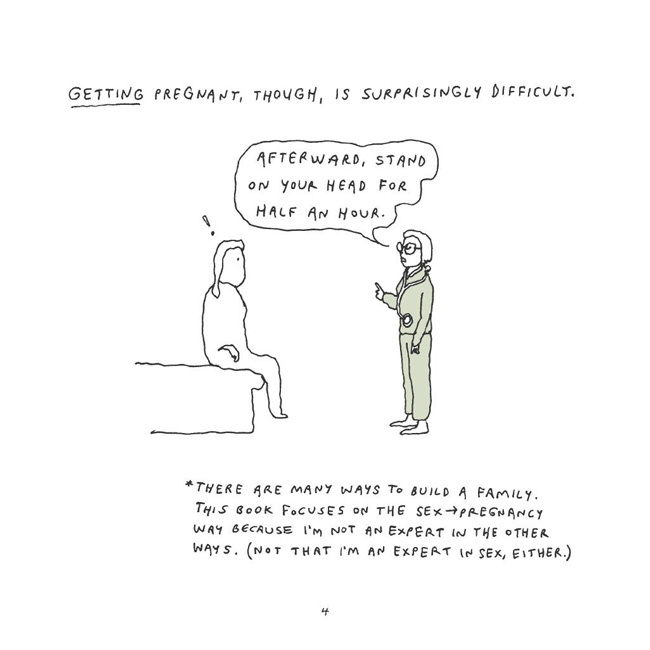 GETTING PREGNANT, THOUGH, IS SURPRISINGLY DIFFICULT.
!
AFTERWARD, STAND
ON YOUR HEAD FOR
HALF AN HOUR.
*THERE ARE MANY WAYS TO BUILD A FAMILY.
THIS BOOK FOCUSES ON THE SEX→PREGNANCY
WAY BECAUSE I'M NOT AN EXPERT IN THE OTHER
WAYS. (NOT THAT I'M AN EXPERT IN SEX, EITHER.)
4